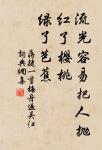 流光容易把人抛
红了樱桃
绿了芭蕉
蒋捷一剪梅舟过吴江
词典细集